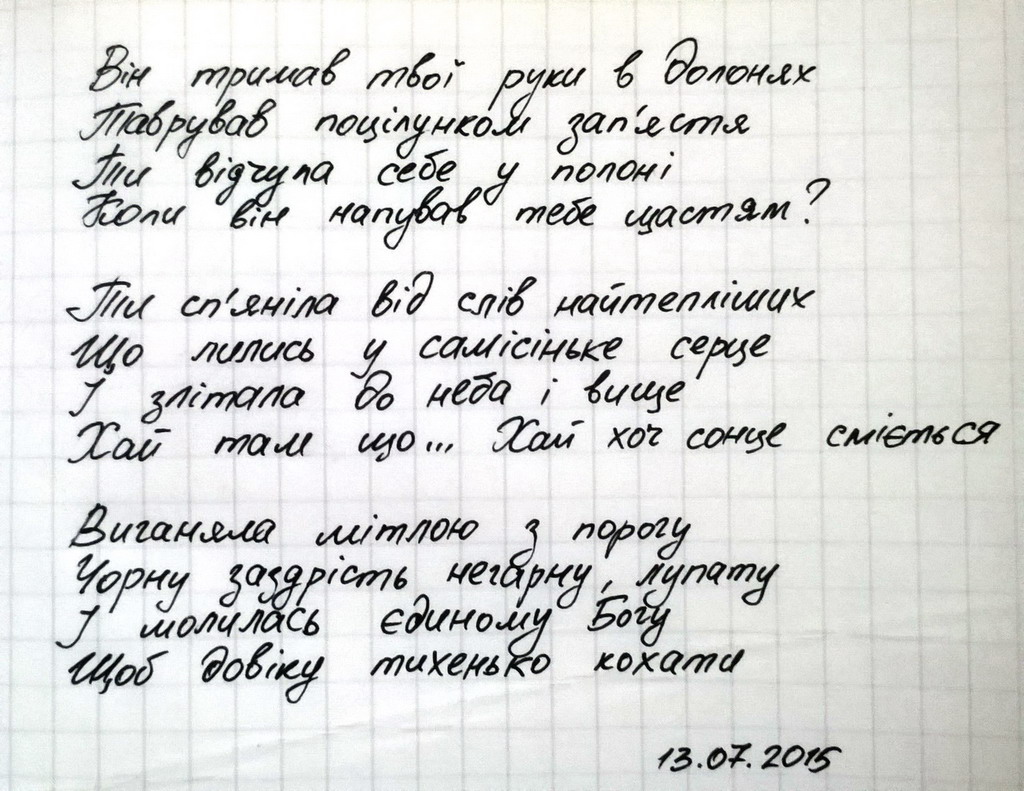 Він тримав твої руки в долонях
Таврував поцілунком зап'ястя
Ти відчула себе у полоні
Коли він напував тебе щастям?
Ти сп'яніла від слів найтепліших
Що лились у самісіньке серце
І злітала до неба і вище
Хай там що... Хай хоч сонце сміється
Виганяла мітлою з порогу
Чорну заздрість негарну, лупату
І молилась єдиному Богу
Щоб довіку тихенько кохати
13.07.2015